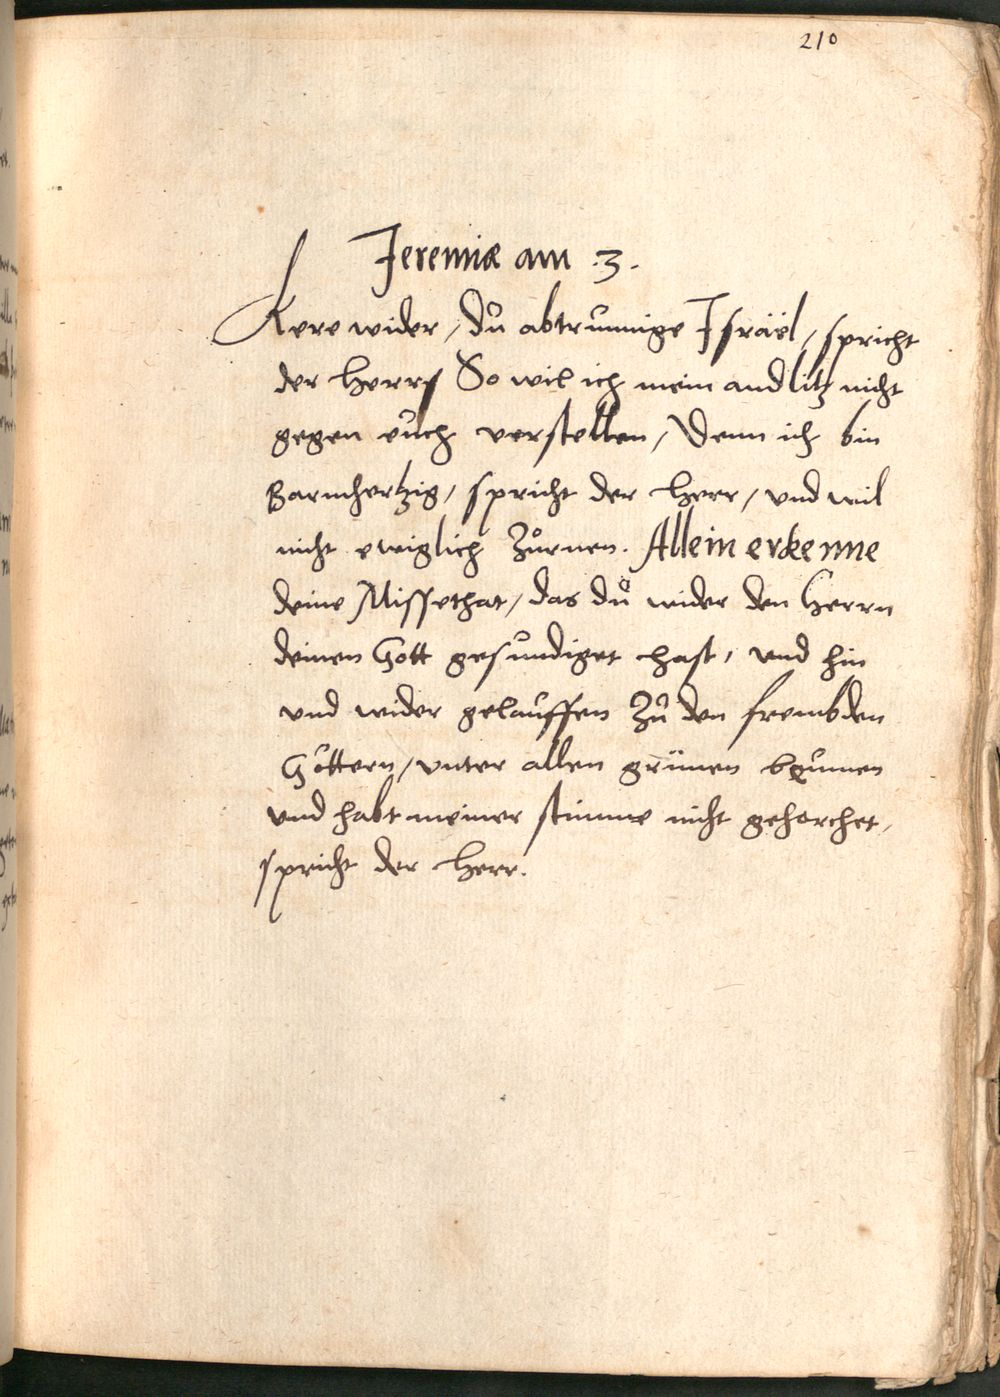 210
Jeremiæ am .3.
Kere wider, du abtrunnige Israël, spricht
der Herr, So wil ich mein andlitz nicht
gegen euch verstellen, Denn ich bin
Barmhertzig, spricht der Herr, und wil
nicht ewiglich Zůrnen. Allein erkenne
deine Missethat, das dů wider den Herrn
deinen Gott gesundiget hast, und hin
und wider gelauffen Zu den frembden
Göttern, unter allen grünen bäumen
und habt meiner stimme nicht gehorchet,
spricht der Herr.